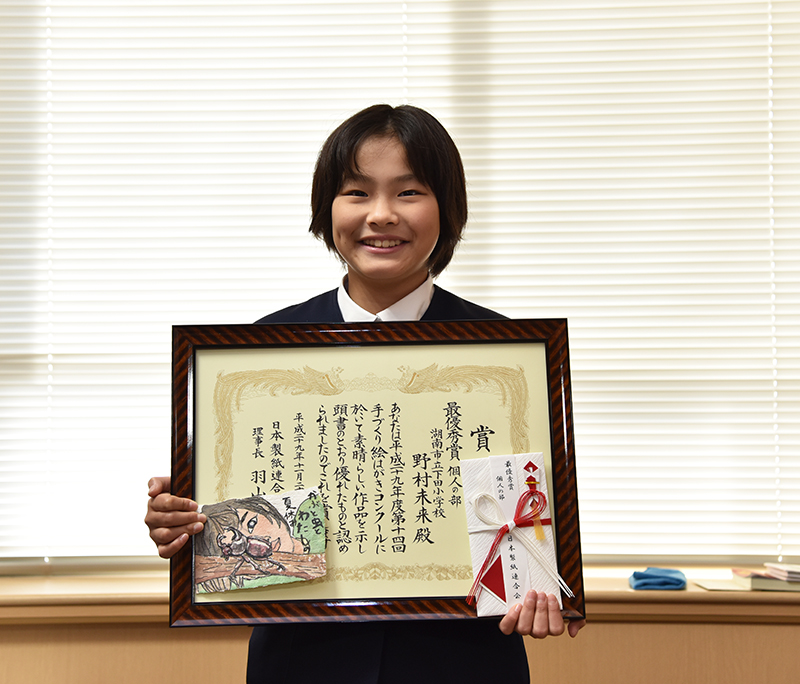 賞
最優秀賞 個人の部
湖南市立下田小学校
野村未来 殿
あなたは平成二十九年度第十四回
手づくり絵はがきコンクールに
於いて素晴らしい作品を示し
頭書のとおり優れたものと認め
られましたのでこれを賞
平成二十九年十一月二
日本製紙連合
理事長 羽山
最優秀賞
個人の部
日本製紙連合会
かぶと虫と
わたしの
夏休み